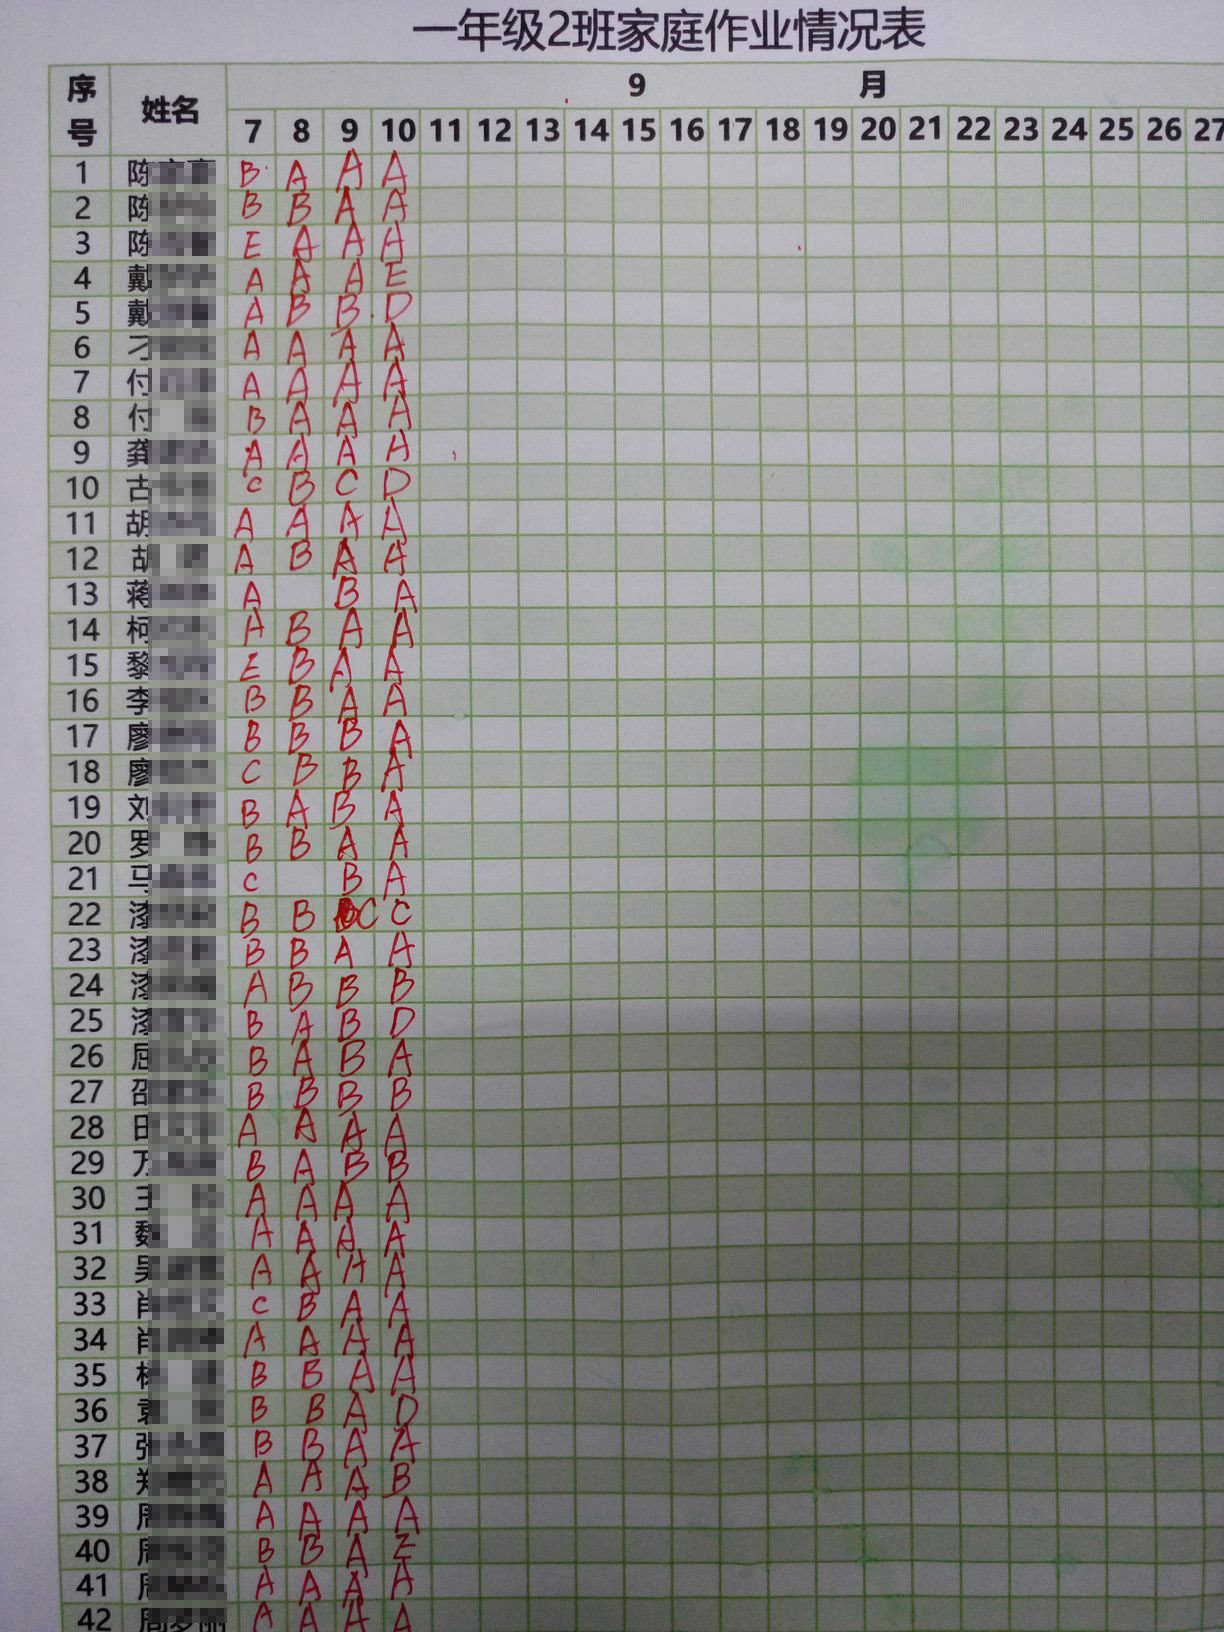 一年级2班家庭作业情况表
序号 姓名 9 月
7 8 9 10 11 12 13 14 15 16 17 18 19 20 21 22 23 24 25 26 27
1 陈 B A A A
2 陈 B B A A
3 陈 E A A A
4 戴 A A A E
5 戴 A B B D
6 刁 A A A A
7 付 A A A A
8 付 B A A A
9 龚 A A A A
10 古 C B C D
11 胡 A A A A
12 胡 A B A A
13 蒋 A B A
14 柯 A B A A
15 黎 E B A A
16 李 B B A A
17 廖 B B B A
18 廖 C B B A
19 刘 B A B A
20 罗 B B A A
21 马 C B A
22 漆 B B C C
23 漆 B B A A
24 漆 A B B B
25 漆 B A B D
26 屈 B A B A
27 邵 B B B B
28 田 A A A A
29 万 B A B B
30 王 A A A A
31 魏 A A A A
32 吴 A A A A
33 肖 C B A A
34 肖 A A A A
35 杨 B B A A
36 袁 B B A D
37 张 B B A A
38 郑 A A A B
39 周 A A A A
40 周 B B A E
41 周 A A A A
42 周 A A A A